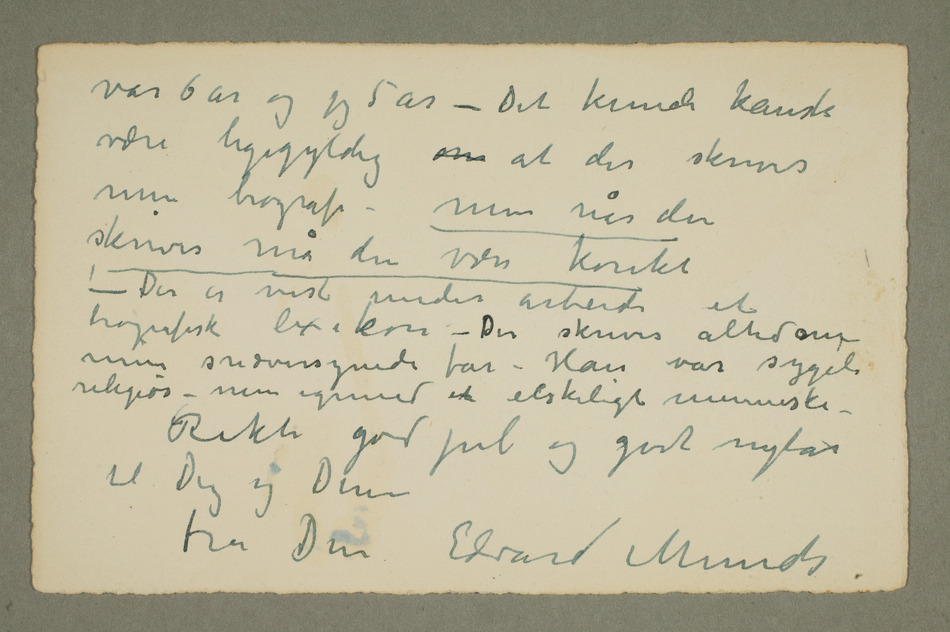 var 6 år og jeg 5 år – Det kunde kanske
være ligegyldig om at der skrives
min biografi – men når den
skrives må den være korekt
! – Der er vist under arbeide et
biografisk lexikon – Der skrives altid om
min snæversynede far – Han var sygeli
religiøs – men igrund et elskeligt menneske –
Rikti god jul og godt nytår
til Dig og Dine
fra Din Edvard Munch